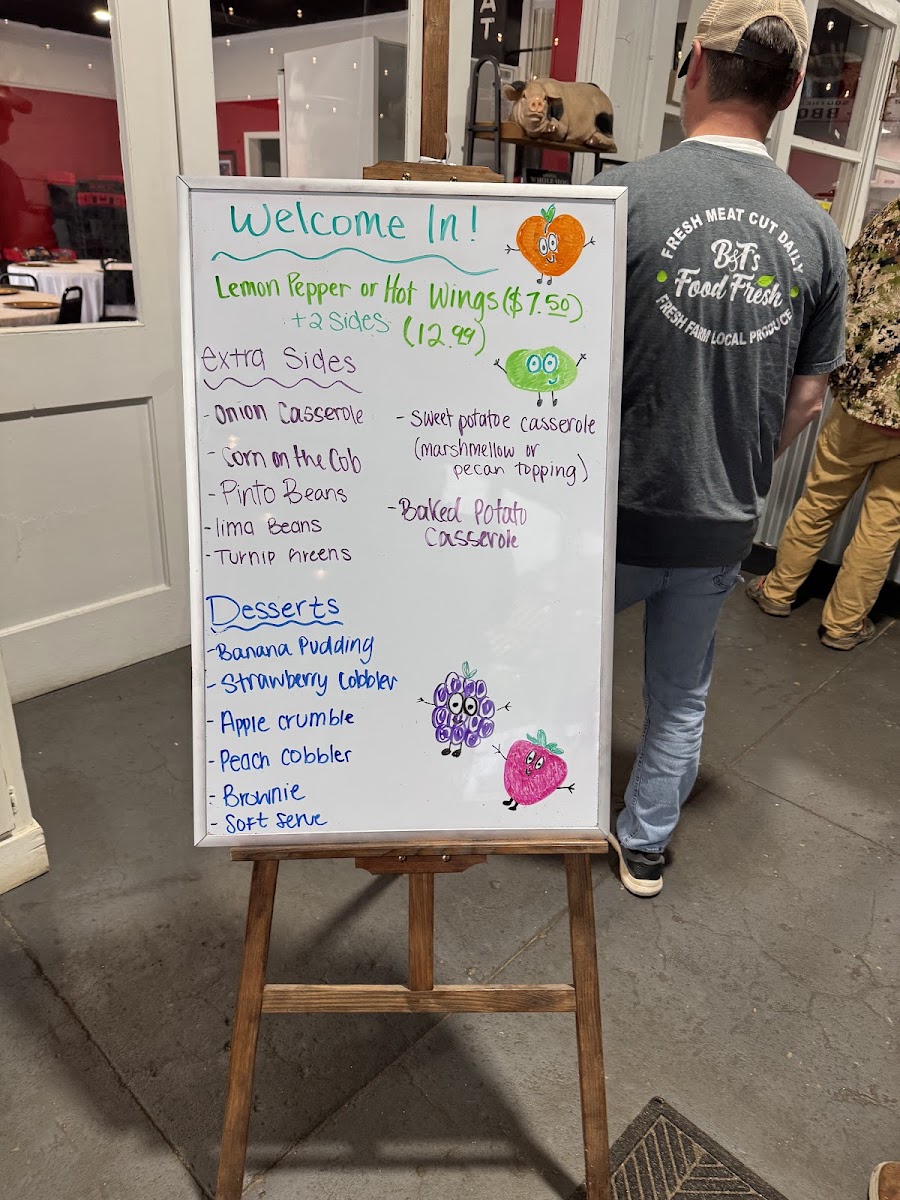 AT
BBQ
Welcome In!
Lemon Pepper or Hot Wings ($7.50)
+2 sides (12.99)
extra Sides
- Onion Casserole
- Corn on the Cob
- Pinto Beans
- lima Beans
- Turnip Greens
- Sweet potatoe casserole
(marshmellow or
pecan topping)
- Baked Potato
Casserole
Desserts
- Banana Pudding
- Strawberry Cobbler
- Apple crumble
- Peach Cobbler
- Brownie
- Soft Serve
FRESH MEAT CUT DAILY
B&F's
Food Fresh
FRESH FARM LOCAL PRODUCE